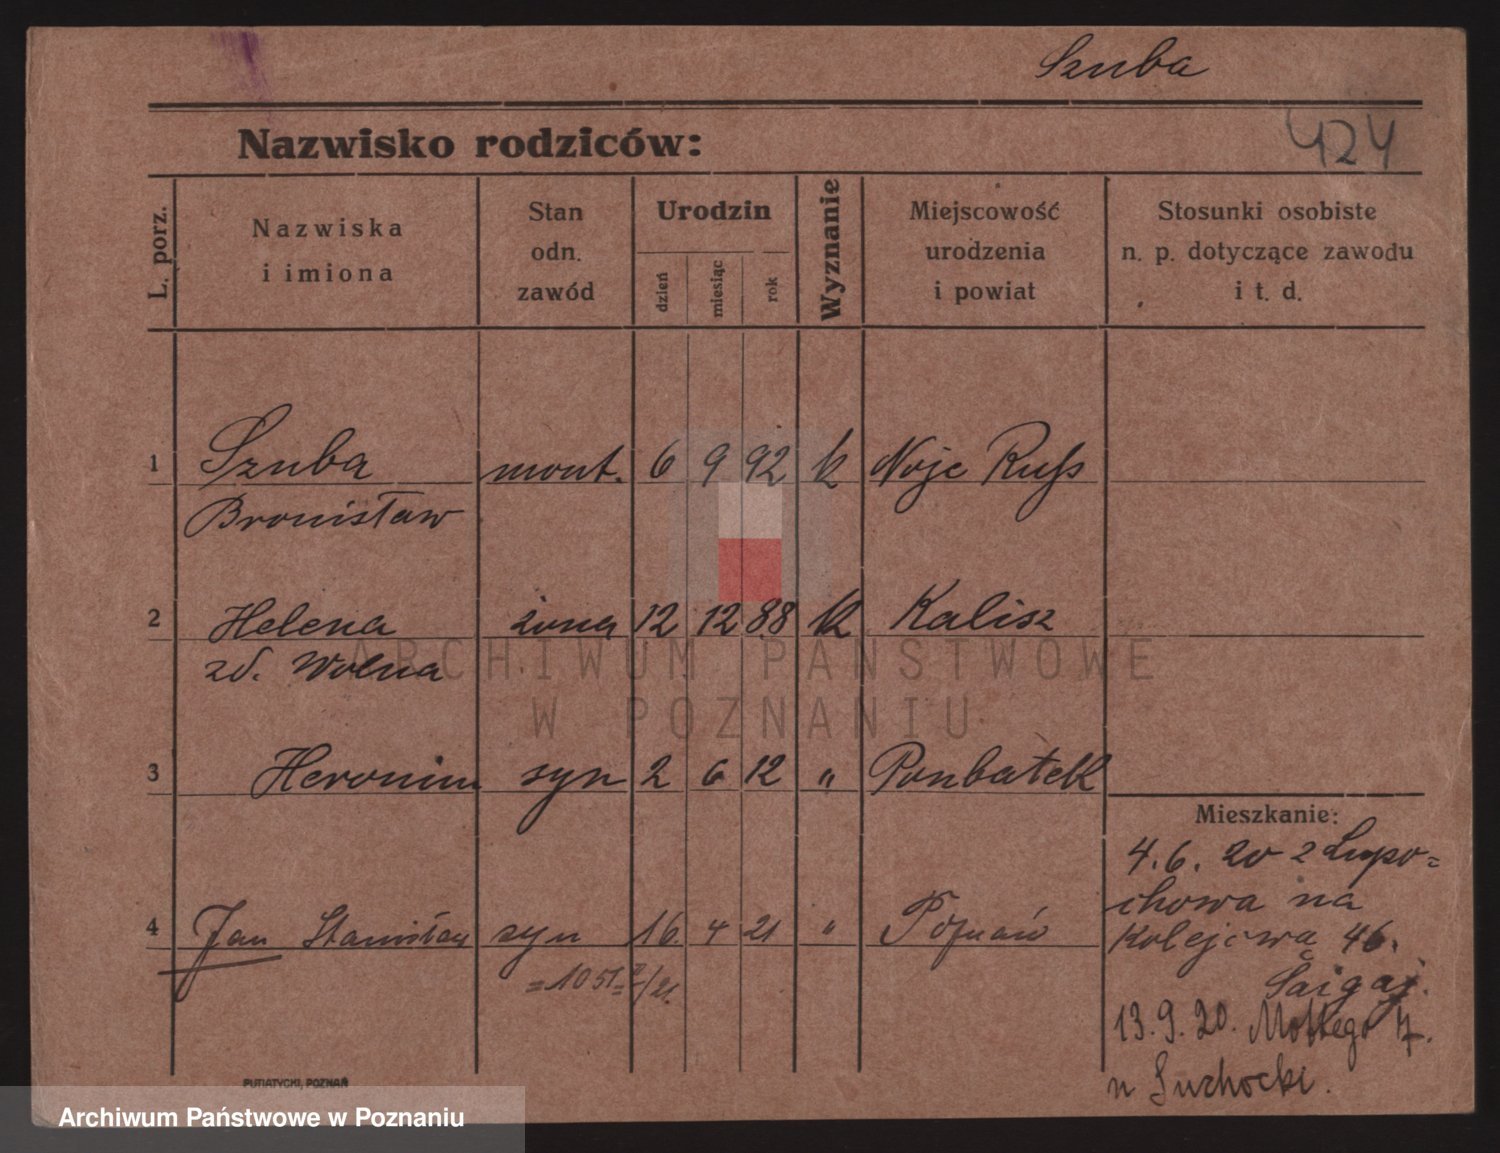 Szuba
424
Nazwisko rodziców:
L. porz.
Nazwiska
i imiona
Stan
odn.
zawód
Urodzin
dzień
miesiąc
rok
Wyznanie
Miejscowość
urodzenia
i powiat
Stosunki osobiste
n. p. dotyczące zawodu
i t. d.
1 Szuba mont. 6 9 92 k Noje Russ
Bronisław
2 Helena żona 12 12 88 k Kalisz
zd. Wolna
3 Heronim syn 2 6 12 "
Mieszkanie:
4.6.20 z Lupo=
chowa na
Kolejową 46.
4 Jan Stanisław syn 16 4 21 " Poznań
13.9.20. Mottego 7.
Suchocki.
PUTIATYCKI, POZNAŃ
ARCHIWUM PAŃSTWOWE
W POZNANIU
Archiwum Państwowe w Poznaniu